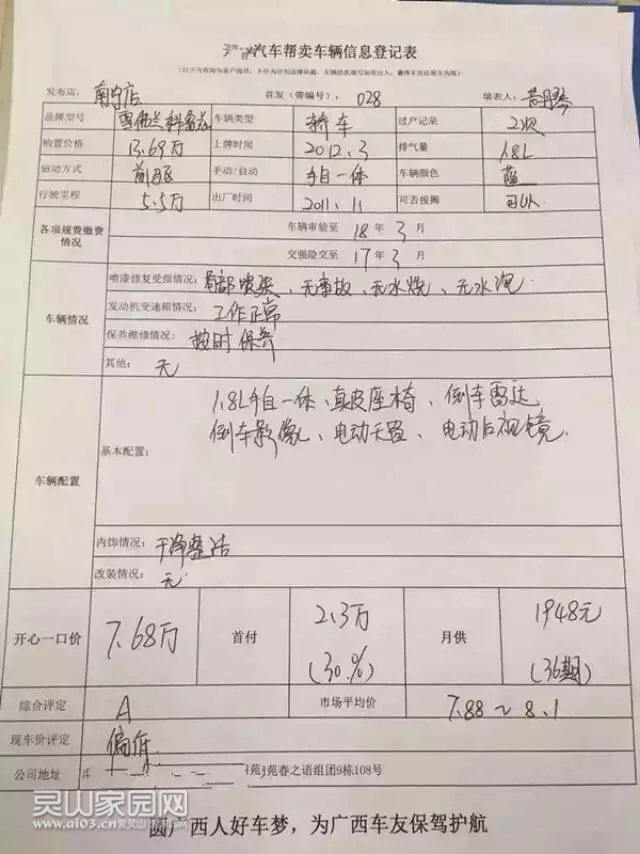 汽车帮卖车辆信息登记表
发布店: 南宁店 首发(带编号): 028 填表人:
品牌型号 雪佛兰科鲁兹 车辆类型 轿车 过户记录 2次
购置价格 13.69万 上牌时间 2012.3 排气量 1.8L
驱动方式 前驱 手动/自动 手自一体 车辆颜色 蓝
行驶里程 5.5万 出厂时间 2011.11 可否按揭 可以
各项规费缴费情况 车辆审验至 18 年 3 月
交强险交至 17 年 3 月
车辆情况 喷漆修复受损情况: 局部喷漆、无事故、无水烧、无水泡.
发动机变速箱情况: 工作正常
保养维修情况: 按时保养
其他: 无
车辆配置 基本配置: 1.8L手自一体、真皮座椅、倒车雷达
倒车影像、电动天窗、电动后视镜.
内饰情况: 干净整洁
改装情况: 无
开心一口价 7.68万 首付 2.3万 (30%) 月供 1948元 (36期)
综合评定 A 市场平均价 7.88~8.1
现车价评定 偏低
公司地址 苑春之语组团9栋108号
灵山家园网
www.a103.cn
圆广西人好车梦，为广西车友保驾护航